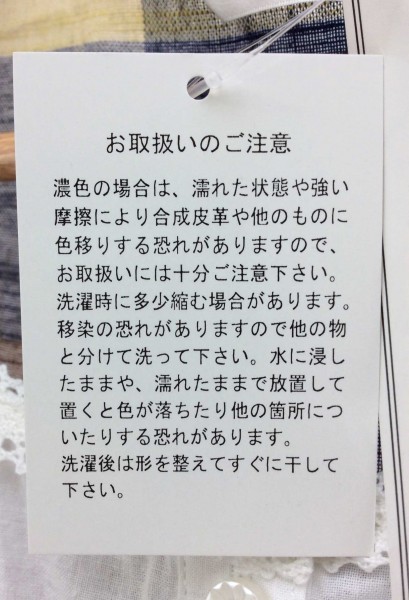 お取扱いのご注意
濃色の場合は、濡れた状態や強い
摩擦により合成皮革や他のものに
色移りする恐れがありますので、
お取扱いには十分ご注意下さい。
洗濯時に多少縮む場合があります。
移染の恐れがありますので他の物
と分けて洗って下さい。水に浸し
たままや、濡れたままで放置して
置くと色が落ちたり他の箇所につ
いたりする恐れがあります。
洗濯後は形を整えてすぐに干して
下さい。